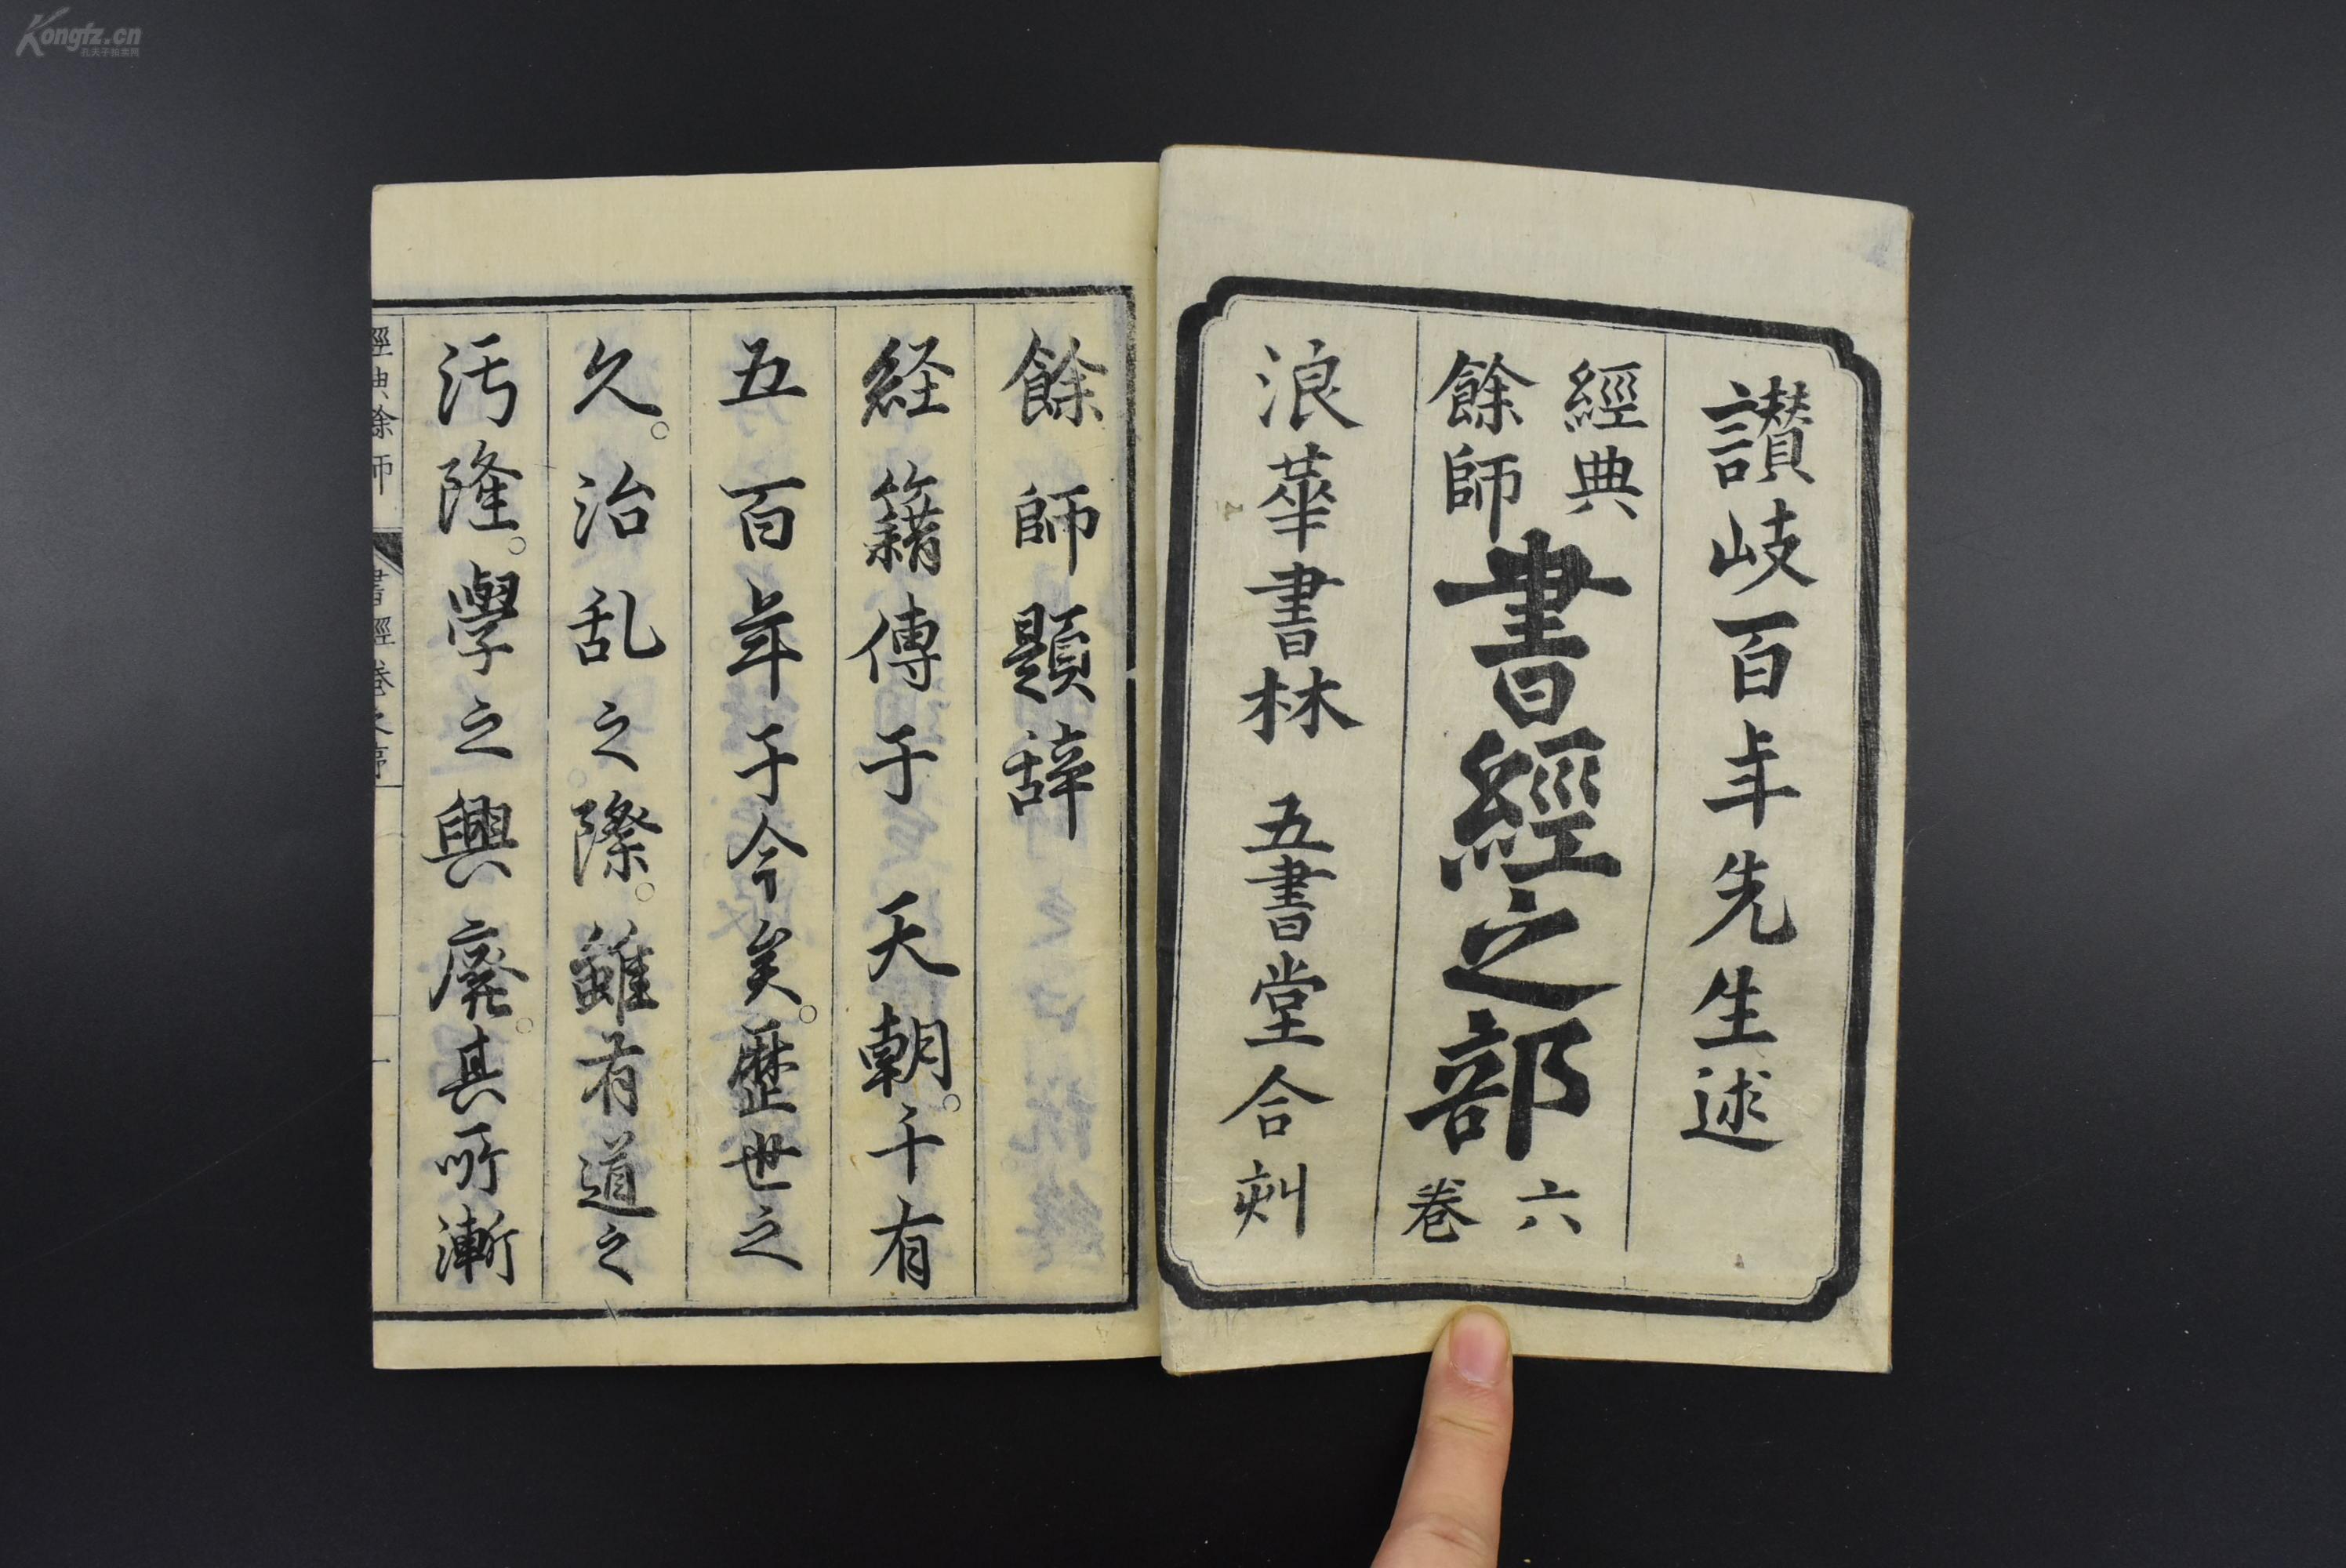 讃岐百年先生述
經典
餘師
書經之部
六
卷
浪華書林 五書堂合刻
餘師題辞
経籍傳于 天朝。千有
五百年于今矣。歴世之
久。治乱之際。雖有道之
汚隆。學之興廃。其所漸
經典餘師 書經卷之序 一
Kongfz.cn
孔夫子拍卖网